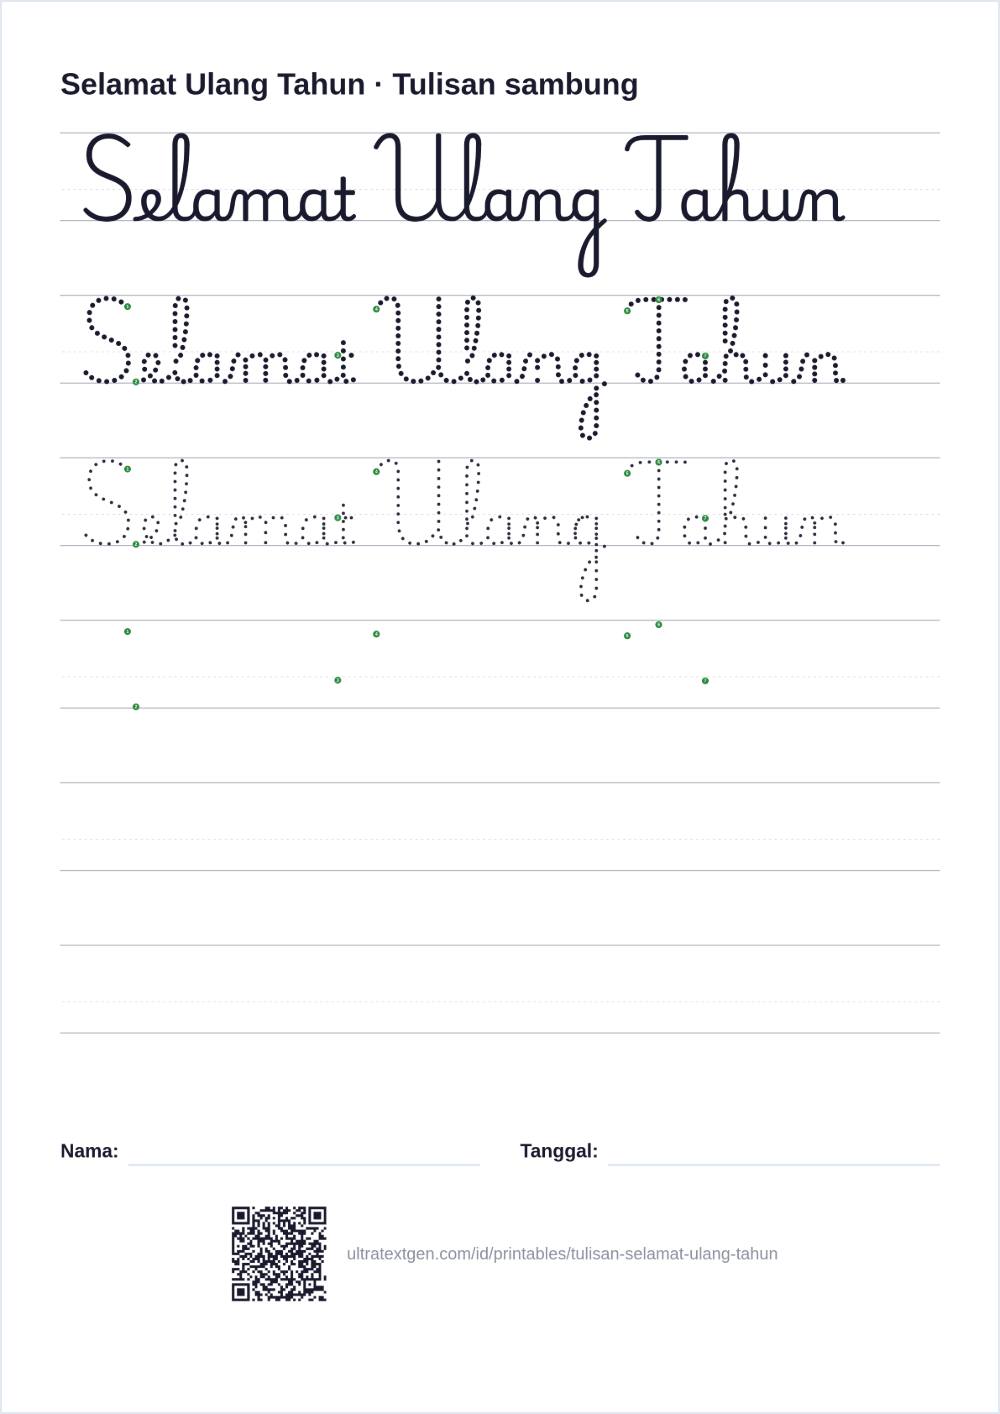 Selamat Ulang Tahun · Tulisan sambung
Selamat Ulang Tahun
Selamat Ulang Tahun
Selamat Ulang Tahun
Nama:
Tanggal:
ultratextgen.com/id/printables/tulisan-selamat-ulang-tahun